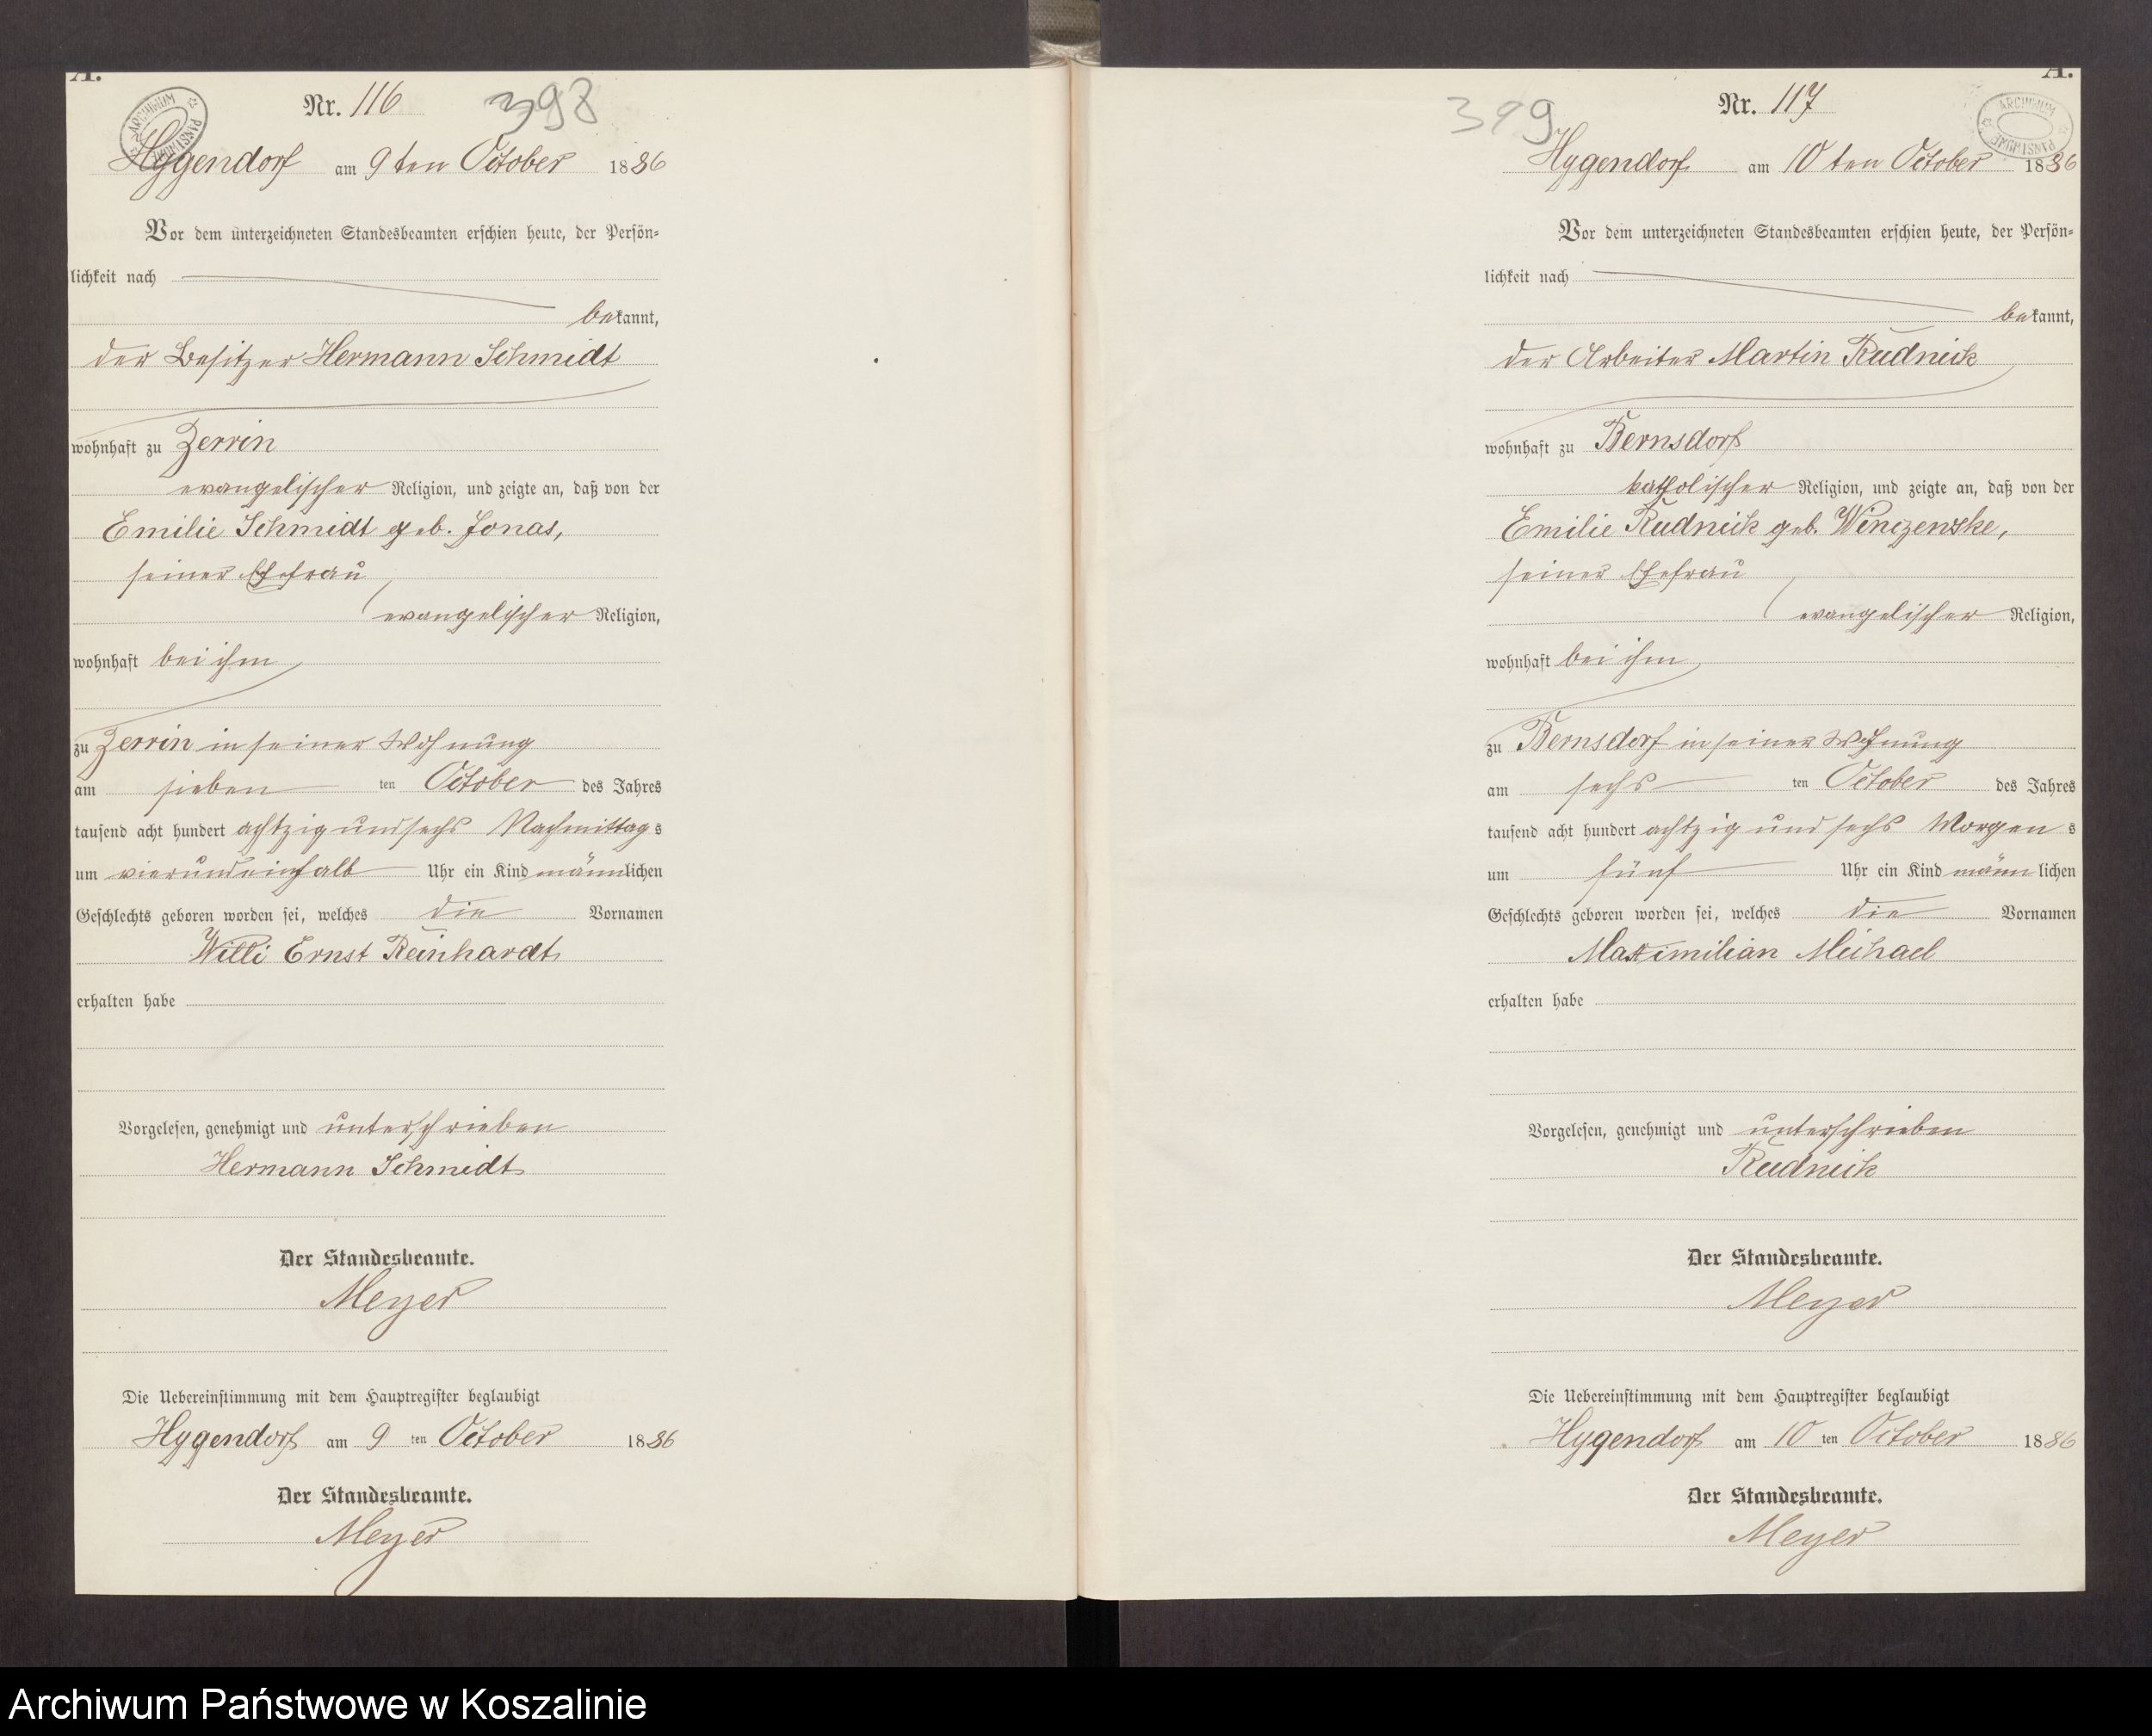 A.
Nr. 116
398
ARCHIWUM PAŃSTWOWE
Hygendorf am 9ten October 1886
Vor dem unterzeichneten Standesbeamten erschien heute, der Persön-
lichkeit nach
bekannt,
der Besitzer Hermann Schmidt
wohnhaft zu Zerrin
evangelischer Religion, und zeigte an, daß von der
Emilie Schmidt geb. Jonas,
seiner Ehefrau
evangelischer Religion,
wohnhaft bei ihm
zu Zerrin in seiner Wohnung
am sieben ten October des Jahres
tausend acht hundert achtzig und sechs Nachmittags
um vierundeinhalb Uhr ein Kind männlichen
Geschlechts geboren worden sei, welches die Vornamen
Willi Ernst Reinhardt
erhalten habe
Vorgelesen, genehmigt und unterschrieben
Hermann Schmidt
Der Standesbeamte.
Meyer
Die Uebereinstimmung mit dem Hauptregister beglaubigt
Hygendorf am 9 ten October 1886
Der Standesbeamte.
Meyer
A.
Nr. 117
399
ARCHIWUM PAŃSTWOWE
Hygendorf am 10ten October 1886
Vor dem unterzeichneten Standesbeamten erschien heute, der Persön-
lichkeit nach
bekannt,
der Arbeiter Martin Rudnick
wohnhaft zu Bernsdorf
katholischer Religion, und zeigte an, daß von der
Emilie Rudnick geb. Winczewske,
seiner Ehefrau
evangelischer Religion,
wohnhaft bei ihm
zu Bernsdorf in seiner Wohnung
am sechs ten October des Jahres
tausend acht hundert achtzig und sechs Morgens
um fünf Uhr ein Kind männlichen
Geschlechts geboren worden sei, welches die Vornamen
Maximilian Michael
erhalten habe
Vorgelesen, genehmigt und unterschrieben
Rudnick
Der Standesbeamte.
Meyer
Die Uebereinstimmung mit dem Hauptregister beglaubigt
Hygendorf am 10 ten October 1886
Der Standesbeamte.
Meyer
Archiwum Państwowe w Koszalinie